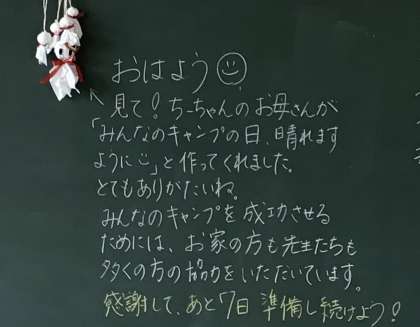 おはよう
見て!ちーちゃんのお母さんが
「みんなのキャンプの日、晴れます
ように」と作ってくれました。
とてもありがたいね。
みんなのキャンプを成功させる
ためには、お家の方も先生たちも
多くの方の協力をいただいています。
感謝して、あと7日 準備し続けよう!